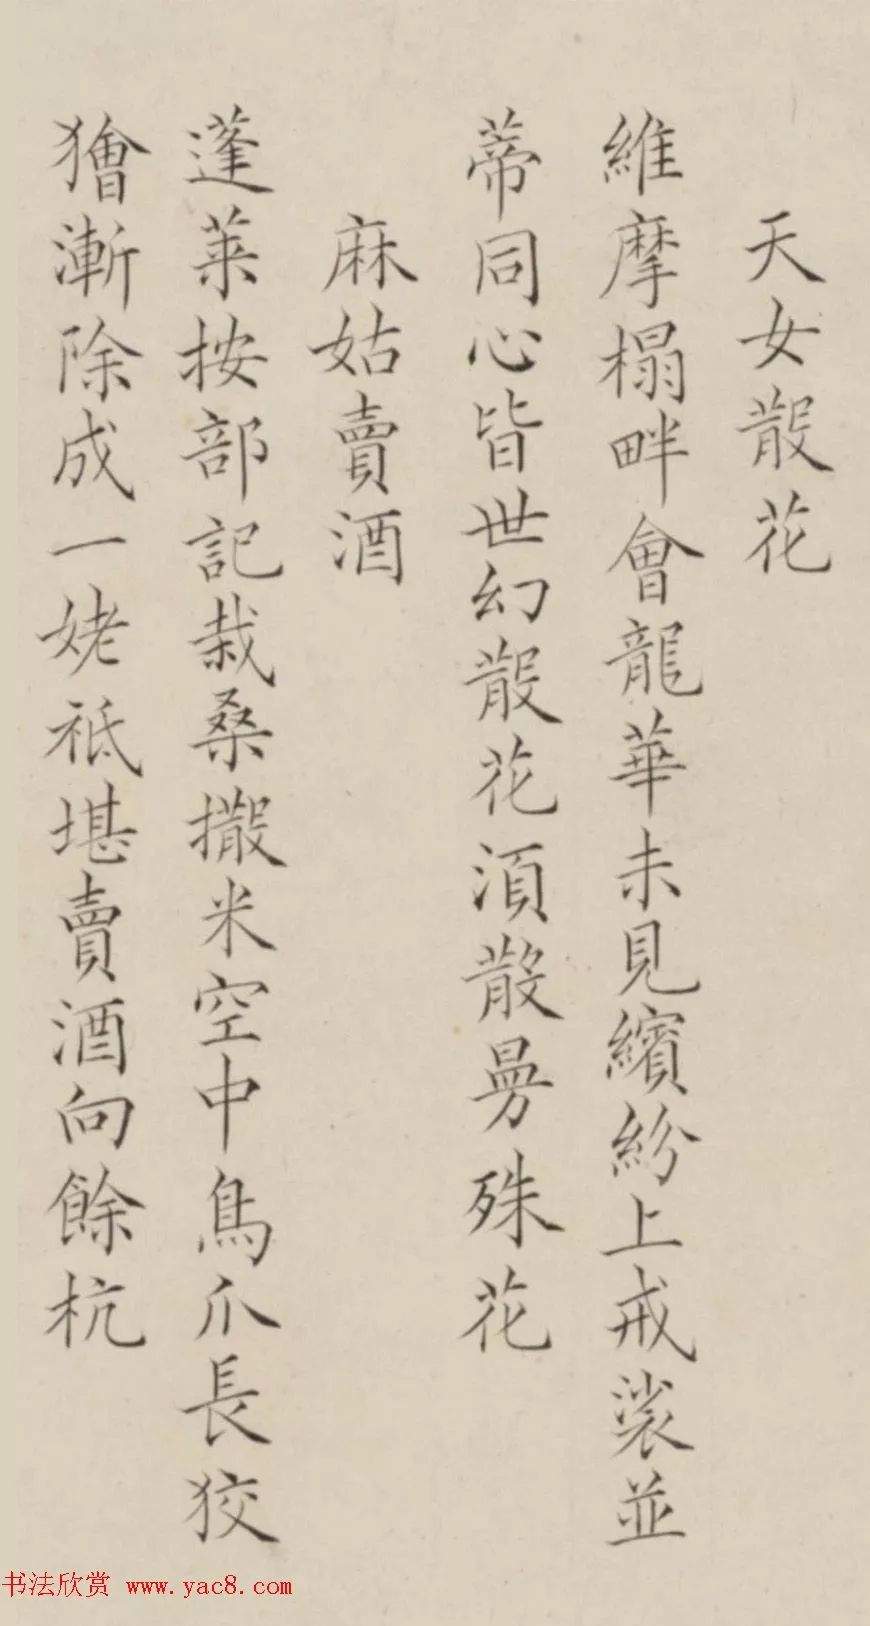 天女散花
維摩榻畔會龍華未見繽紛上戒裟並
蒂同心皆世幻散花須散曼殊花
麻姑賣酒
蓬莱按部記栽桑撒米空中鳥爪長狡
獪漸除成一姥祗堪賣酒向餘杭
书法欣赏 www.yac8.com